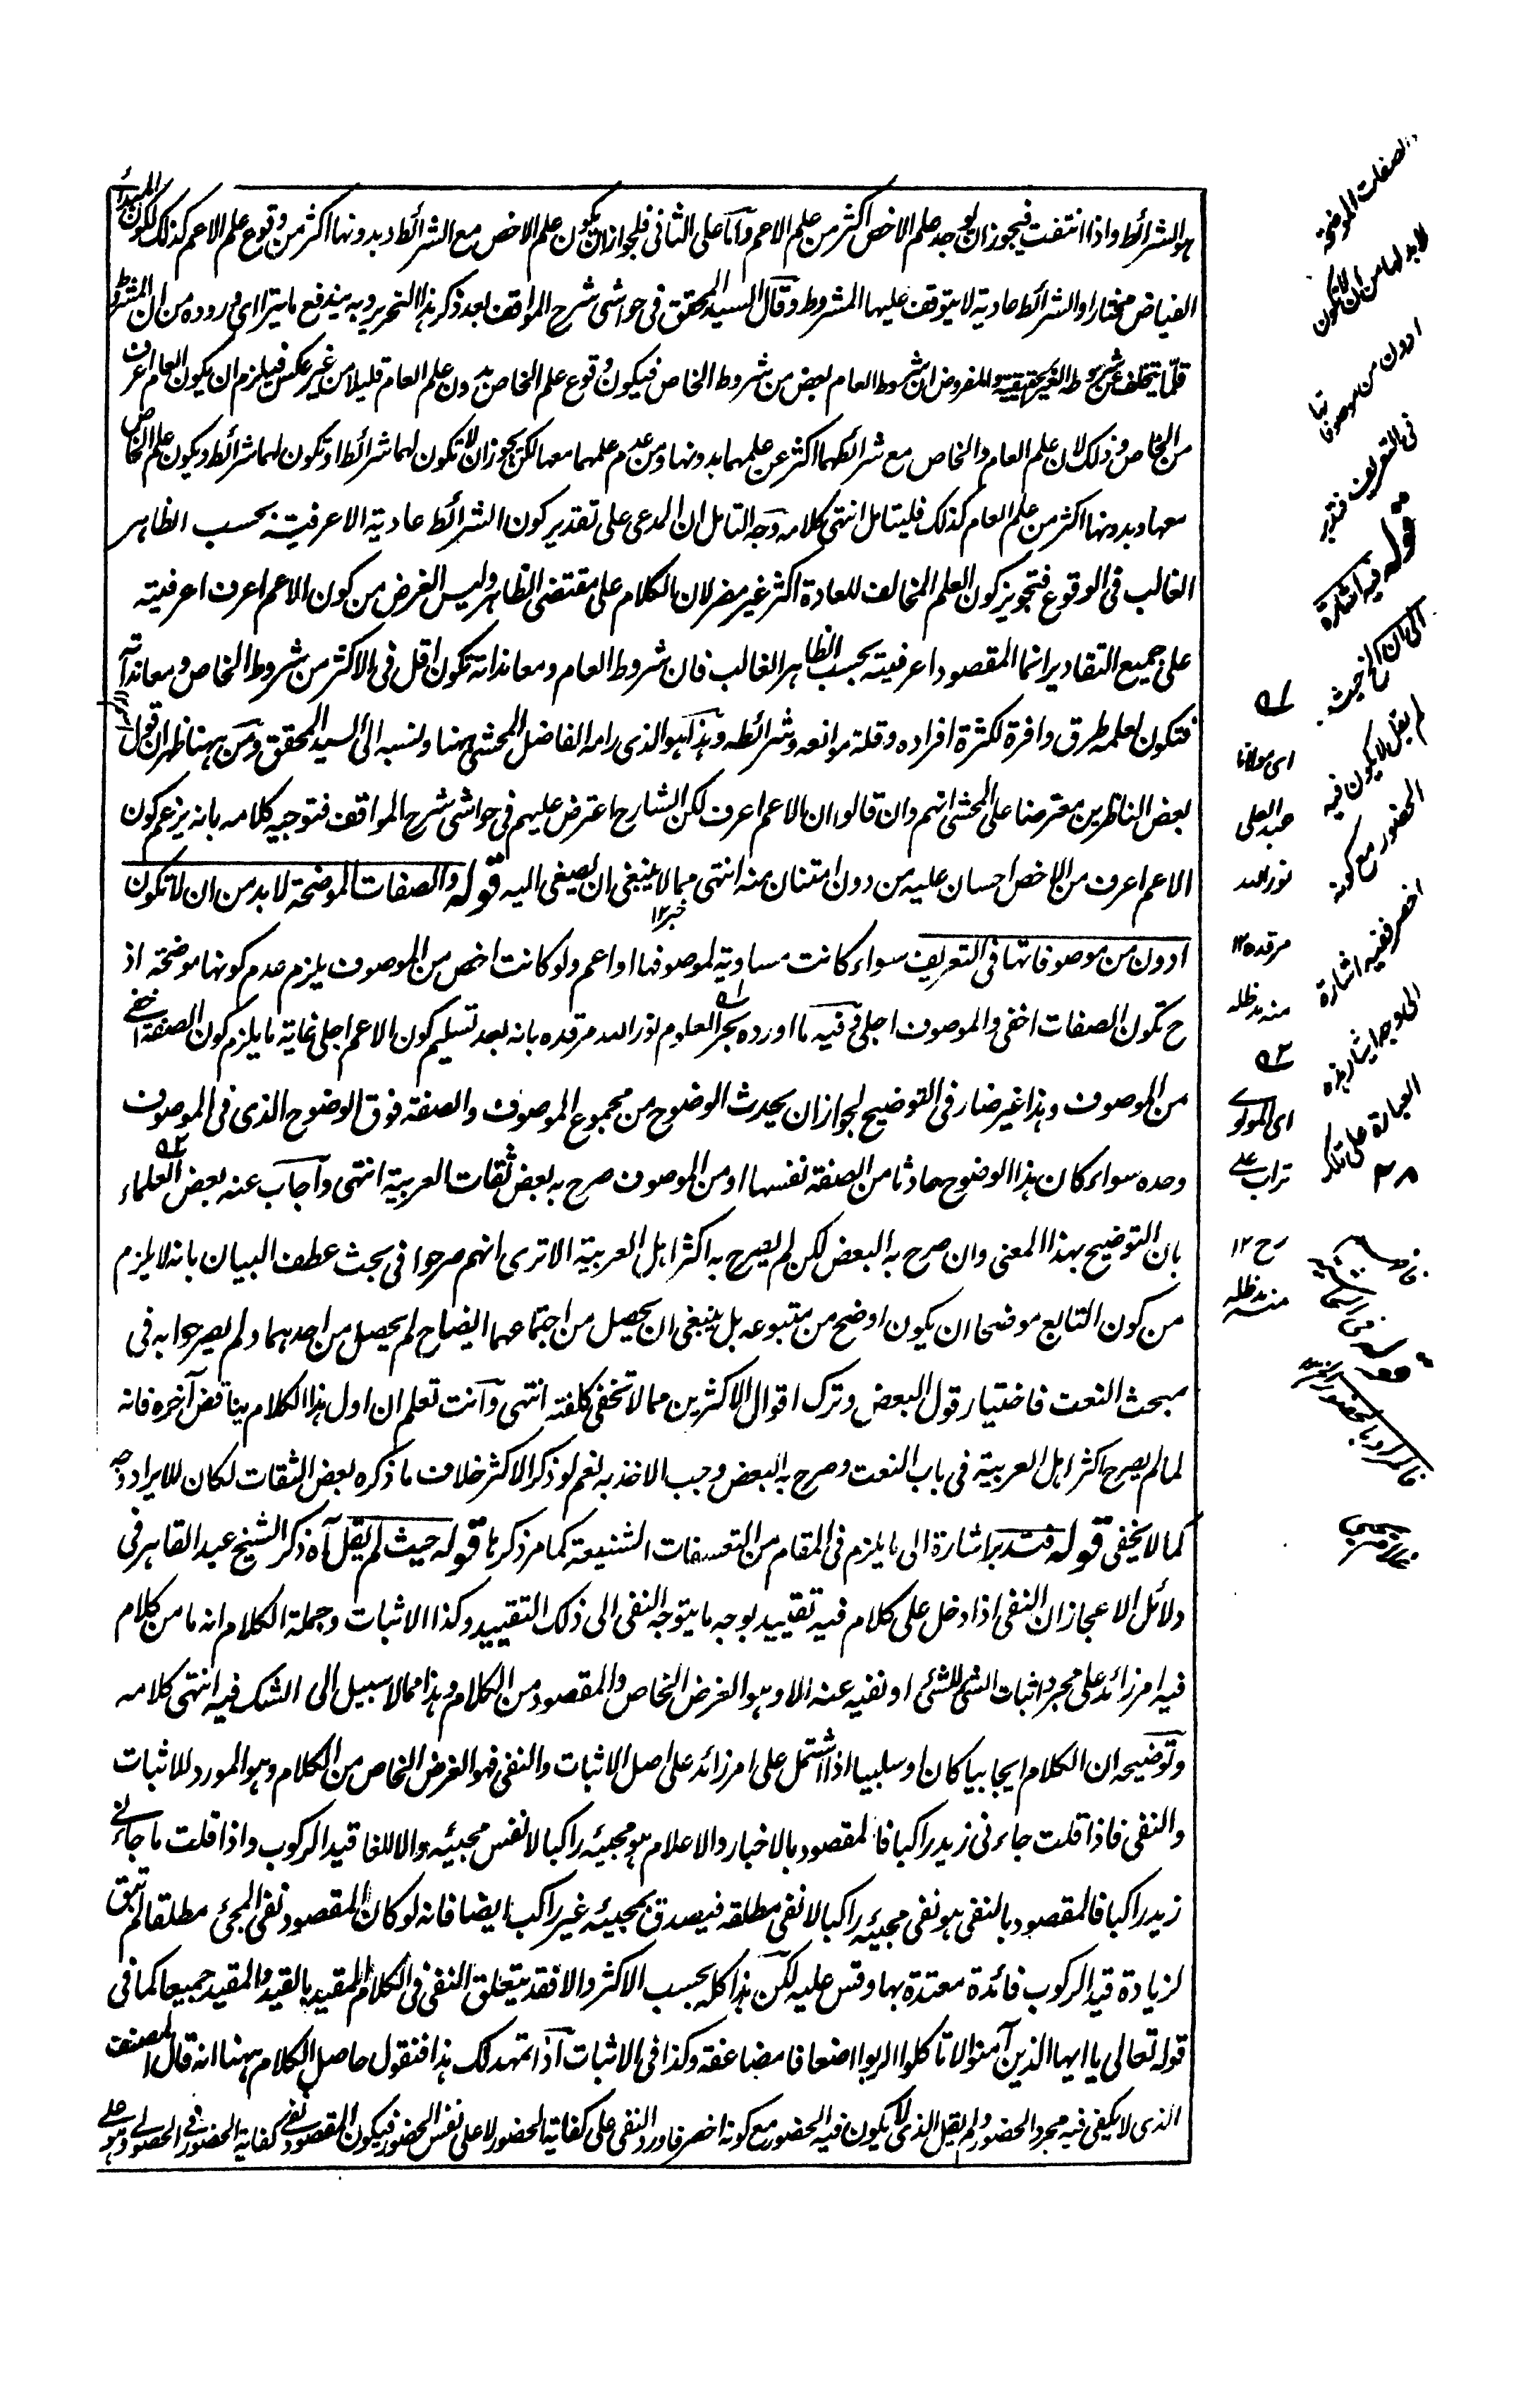 هو الشرائط واذا انتفت فيجوز ان يوجد علم الاخص اكثر من علم الاعم وآما على الثانى فلجواز ان يكون علم الاخص مع الشرائط وبدونها اكثر من وقوع علم الاعم كذلك لكون المبدأ
الفياض مختارا والشرائط عادية لا يتوقف عليها المشروط وقال السيد المحقق فى حواشى شرح المواقف بعد ذكر هذا التحرير وبه يندفع ما يترااى وروده من ان المشروط
قلما يتخلف عن شروطه الغير الحقيقية والمفروض ان شروط العام بعض من شروط الخاص فيكون وقوع علم الخاص بدون علم العام قليلا من غير عكس فيلزم ان يكون العام اعرف
من الخاص وذلك لان علم العام والخاص مع شرائطهما اكثر عن علمهما بدونها ومن عدم علمهما معها لكن يجوز ان لا تكون لهما شرائط او تكون لهما شرائط ويكون علم الخاص
معها وبدونها اكثر من علم العام كذلك فليتامل انتهى كلامه وجه التامل ان المدعى على تقدير كون الشرائط عادية الاعرفية بحسب الظاهر
الغالب فى الوقوع فتجويز كون العلم المخالف للعادة اكثر غير مضر لان الكلام على مقتضى الظاهر وليس الغرض من كون الاعم اعرف اعرفيته
على جميع التقادير انما المقصود اعرفيته بحسب الظاهر الغالب فان شروط العام ومعاندات تكون اقل فى الاكثر من شروط الخاص ومعانداته
فتكون لعلمه طرق وافرة لكثرة افراده وقلة موانعه وشرائطه وهذا هو الذى رامه الفاضل المحشى ههنا ونسبه الى السيد المحقق ومن ههنا ظهر ان قول
بعض الناظرين معترضا على المحشى انهم وان قالوا ان الاعم اعرف لكن الشارح اعترض عليهم فى حواشى شرح المواقف فتوجيه كلامه بانه يزعم كون
الاعم اعرف من الاخص احسان عليه من دون امتنان منه انتهى مما لا ينبغى ان يصغى اليه قوله والصفات الموضحة لا بد من ان لا تكون
ادون من موصوفاتها فى التعريف سواء كانت مساوية لموصوفها او اعم ولو كانت اخص من الموصوف يلزم عدم كونها موضحة اذ
ح تكون الصفات اخفى والموصوف اجلى وفيه ما اورده بحر العلوم نور الله مرقده بانه بعد تسليم كون الاعم اجلى غاية ما يلزم كون الصفة اخفى
من الموصوف وهذا غير ضار فى التوضيح لجواز ان يحدث الوضوح من مجموع الموصوف والصفة فوق الوضوح الذى فى الموصوف
وحده سواء كان هذا الوضوح حادثا من الصفة نفسها او من الموصوف صرح به بعض ثقات العربية انتهى وآجاب عنه بعض العلماء
بان التوضيح بهذا المعنى وان صرح به البعض لكن لم يصرح به اكثر اهل العربية الا ترى انهم صرحوا فى بحث عطف البيان بانه لا يلزم
من كون التابع موضحا ان يكون اوضح من متبوعه بل ينبغى ان يحصل من اجتماعهما ايضاح لم يحصل من احدهما ولم يصرحوا به فى
مبحث النعت فاختيار قول البعض وترك اقوال الاكثرين مما لا تخفى كلفته انتهى وآنت تعلم ان اول هذا الكلام يناقض آخره فانه
لما لم يصرح اكثر اهل العربية فى باب النعت وصرح به البعض وجب الاخذ به نعم لو ذكر الاكثر خلاف ما ذكره بعض الثقات لكان للايراد وجه
كما لا يخفى قوله فتدبر اشارة الى ما يلزم فى المقام من التعسفات الشنيعة كما مر ذكرها قوله حيث لم يقل آه ذكر الشيخ عبد القاهر فى
دلائل الاعجاز ان النفى اذا دخل على كلام فيه تقييد بوجه ما يتوجه النفى الى ذلك التقييد وكذا الاثبات وجملة الكلام انه ما من كلام
فيه امر زائد على مجرد اثبات الشئ للشئ او نفيه عنه الا وهو الغرض الخاص والمقصود من الكلام وهذا مما لا سبيل الى الشك فيه انتهى كلامه
وتوضيحه ان الكلام ايجابيا كان او سلبيا اذا اشتمل على امر زائد على اصل الاثبات والنفى فهو الغرض الخاص من الكلام وهو المورد للاثبات
والنفى فاذا قلت جاءنى زيد راكبا فالمقصود بالاخبار والاعلام هو مجيئه راكبا لا نفس مجيئه والا للغا قيد الركوب واذا قلت ما جاءنى
زيد راكبا فالمقصود بالنفى هو نفى مجيئه راكبا لا نفى مطلقه فيصدق بمجيئه غير راكب ايضا فانه لو كان المقصود نفى المجئ مطلقا لم تبق
لزيادة قيد الركوب فائدة معتدة بها وقس عليه لكن هذا كله بحسب الاكثر والا فقد يتعلق النفى فى الكلام المقيد بالقيد والمقيد جميعا كما فى
قوله تعالى يا ايها الذين آمنوا لا تاكلوا الربوا اضعافا مضاعفة وكذا فى الاثبات آذا تمهد لك هذا فنقول حاصل الكلام ههنا انه قال المصنف
الذى لا يكفى فيه مجرد الحضور ولم يقل الذى لا يكون فيه الحضور مع كونه اخصر فاورد النفى على كفاية الحضور لا على نفس الحضور فيكون المقصود نفى كفاية الحضور فى الحصولى وهو على
الصفات الموضحة
لا بد لها من ان لا تكون
ادون من موصوفاتها
فى التعريف فتدبر
قوله فيه اشارة
الى ان
حيث
لم يقل لا يكون فيه
الحضور مع كونه
اخصر ففيه اشارة
الى وجه ايثار هذه
العبارة على تلك
اى مولانا
عبد العلى
نور الله
مرقده ١٢
منه مد ظله
اى المولوى
تراب على
رح ١٢
منه مد ظله